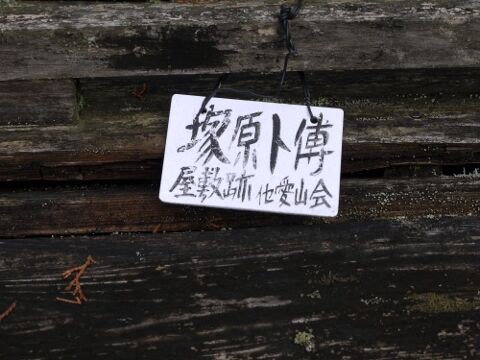 塚原卜傳
屋敷跡 他愛山会